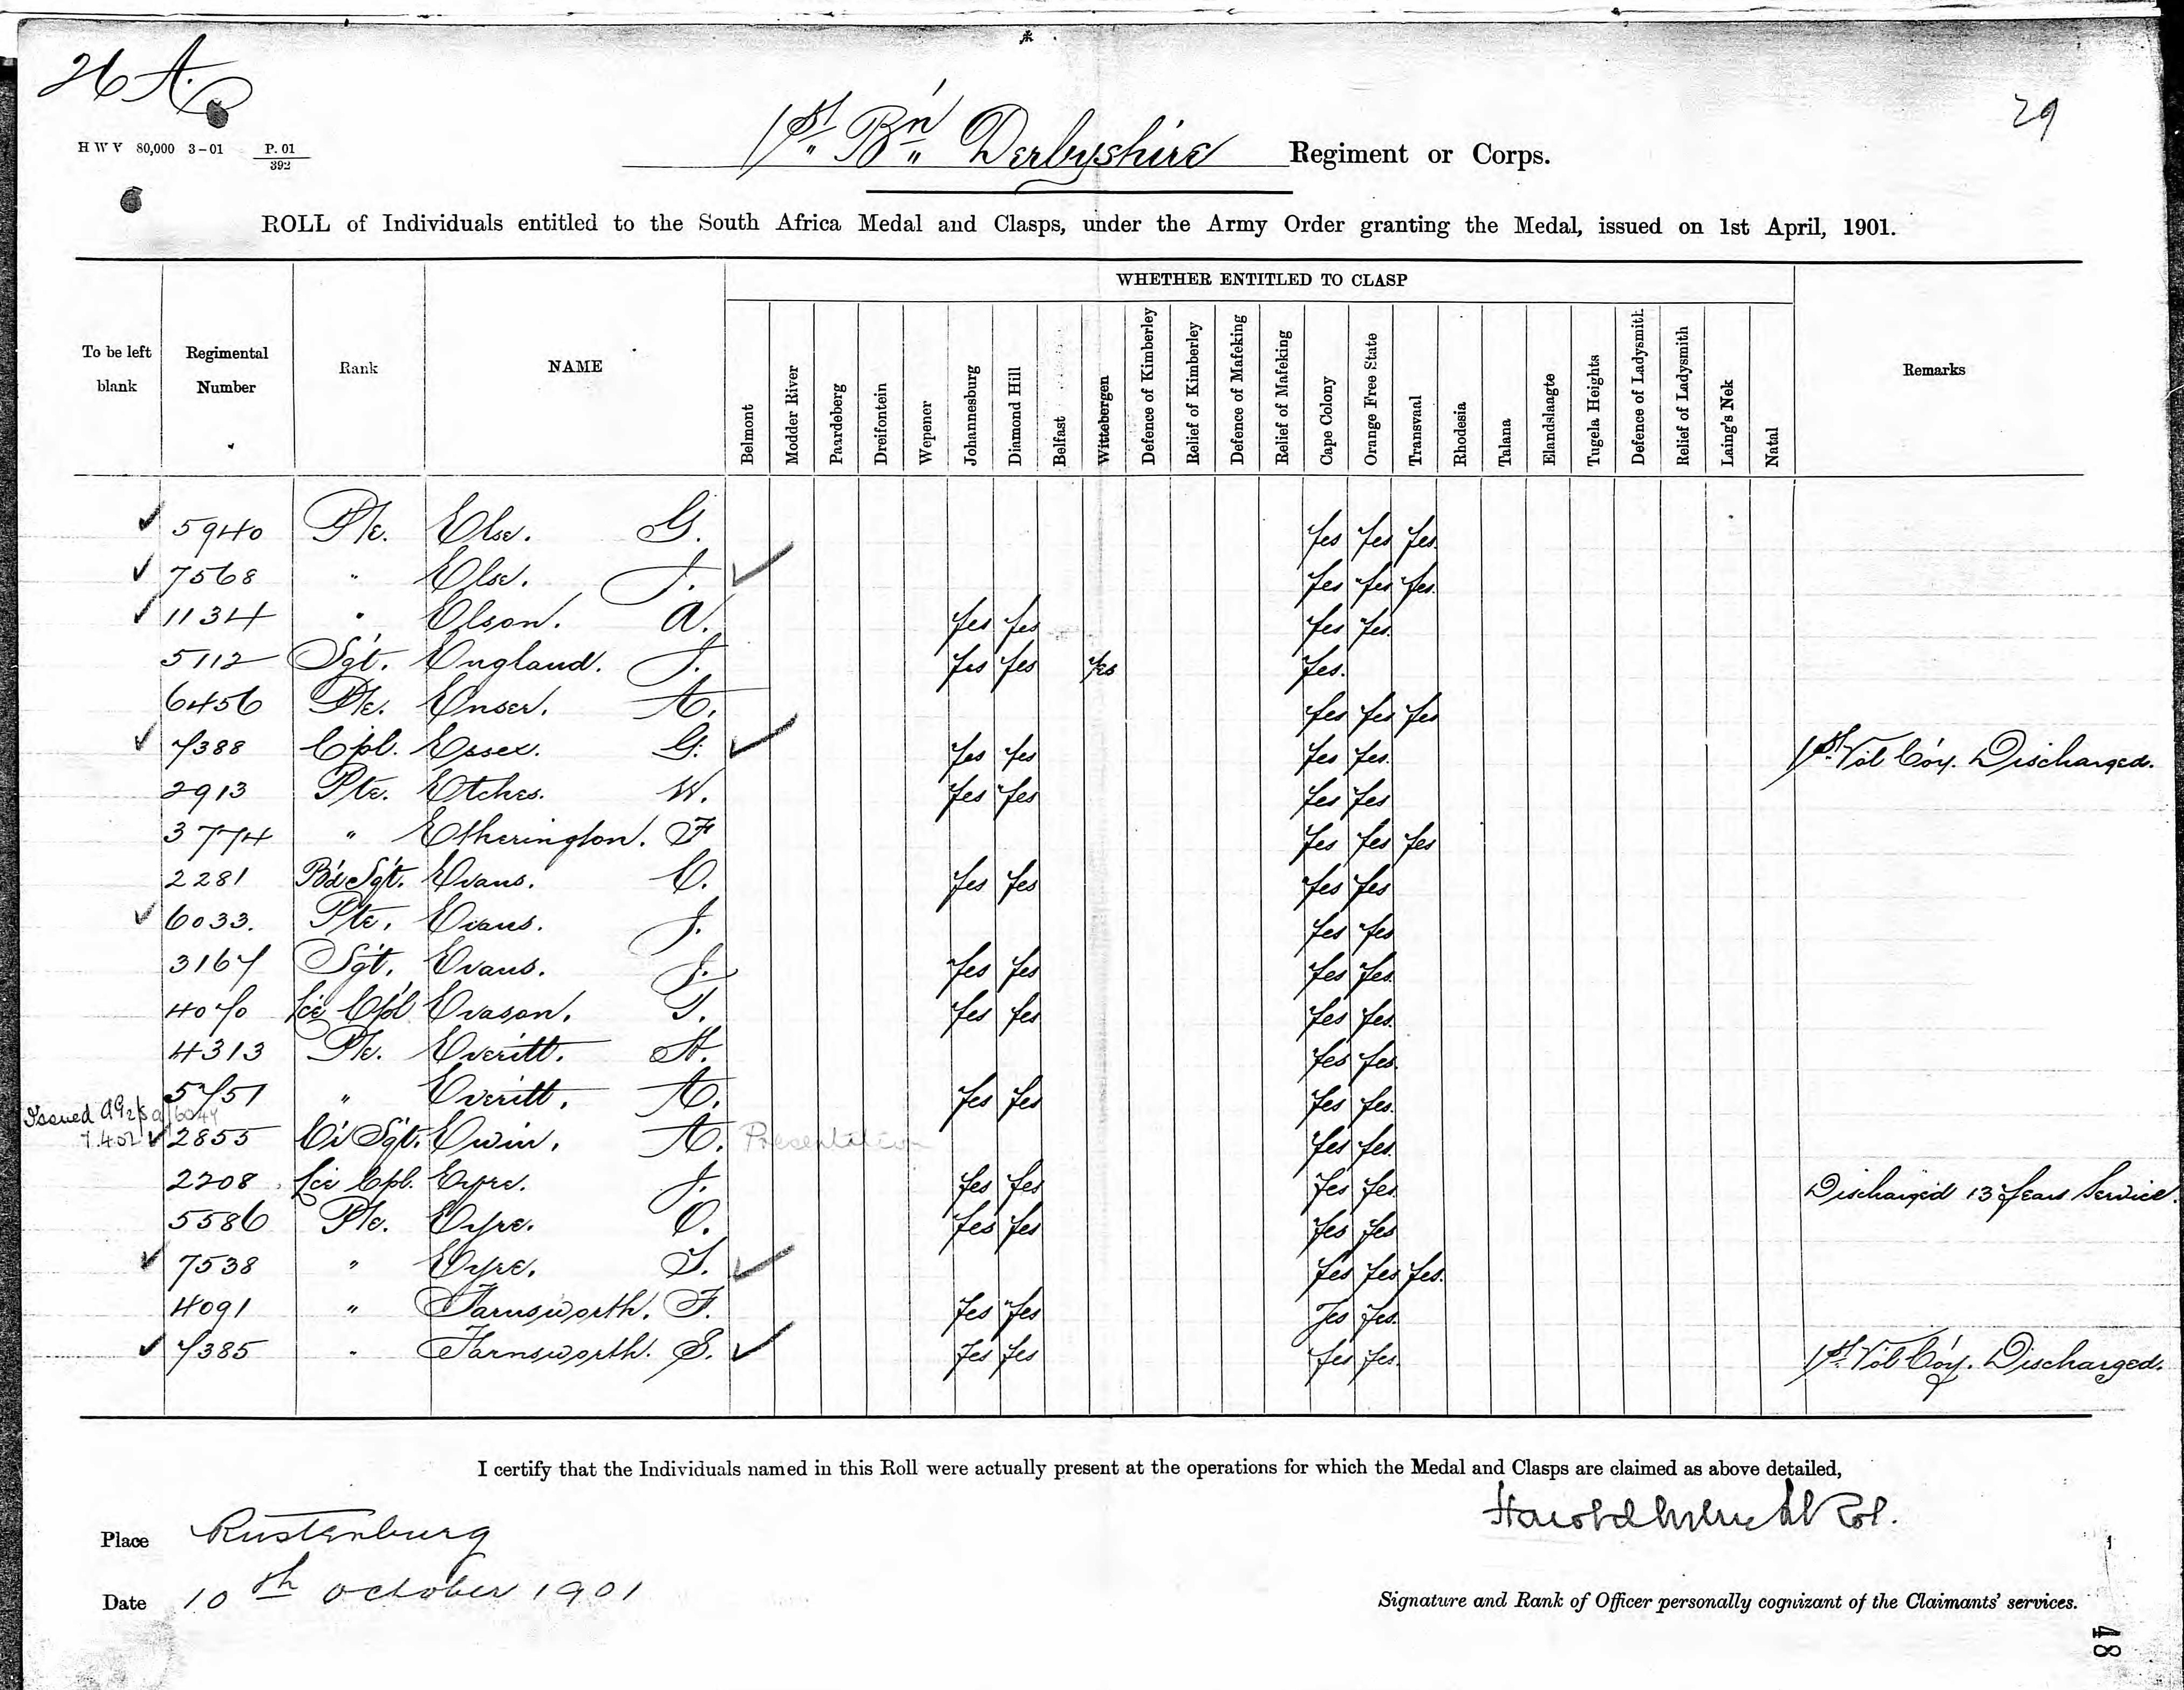 H A.
29
H W V 80,000 3–01 P. 01
392
1st Bn Derbyshire Regiment or Corps.
ROLL of Individuals entitled to the South Africa Medal and Clasps, under the Army Order granting the Medal, issued on 1st April, 1901.
WHETHER ENTITLED TO CLASP
To be left blank Regimental Number Rank NAME Belmont Modder River Paardeberg Dreifontein Wepener Johannesburg Diamond Hill Belfast Wittebergen Defence of Kimberley Relief of Kimberley Defence of Mafeking Relief of Mafeking Cape Colony Orange Free State Transvaal Rhodesia Talana Elandslaagte Tugela Heights Defence of Ladysmith Relief of Ladysmith Laing's Nek Natal Remarks
✓ 5940 Pte. Else. G. Yes Yes Yes.
✓ 7568 " Else. J. ✓ Yes Yes Yes.
✓ 1134 " Elson. A. Yes Yes Yes Yes.
5112 Sgt. England. J. Yes Yes Yes Yes.
6456 Pte. Enser. A. Yes Yes Yes
✓ 7388 Cpl. Essex. G. ✓ Yes Yes Yes Yes. 1st Vol Coy. Discharged.
2913 Pte. Etches. W. Yes Yes Yes Yes
3774 " Etherington. F Yes Yes Yes
2281 Bd Sgt. Evans. C. Yes Yes Yes Yes
✓ 6033. Pte. Evans. J. Yes Yes
3167 Sgt. Evans. J. Yes Yes Yes Yes.
4070 Lce Cpl Evason. T. Yes Yes Yes Yes.
4313 Pte. Everitt. H. Yes Yes.
5751 " Everitt. A. Yes Yes Yes Yes.
Issued
✓ 2855 Cr Sgt. Ewin. A. Presentation Yes Yes.
2208 Lce Cpl. Eyre. J. Yes Yes Yes Yes. Discharged 13 Years Service.
5586 Pte. Eyre. O. Yes Yes Yes Yes
✓ 7538 " Eyre. T. ✓ Yes Yes Yes.
4091 " Farnsworth. F. Yes Yes Yes Yes.
✓ 7385 " Farnsworth. S. ✓ Yes Yes Yes Yes. 1st Vol Coy. Discharged.
I certify that the Individuals named in this Roll were actually present at the operations for which the Medal and Clasps are claimed as above detailed,
Place Rustenburg
Col.
Date 10th October 1901
Signature and Rank of Officer personally cognizant of the Claimants' services.
48